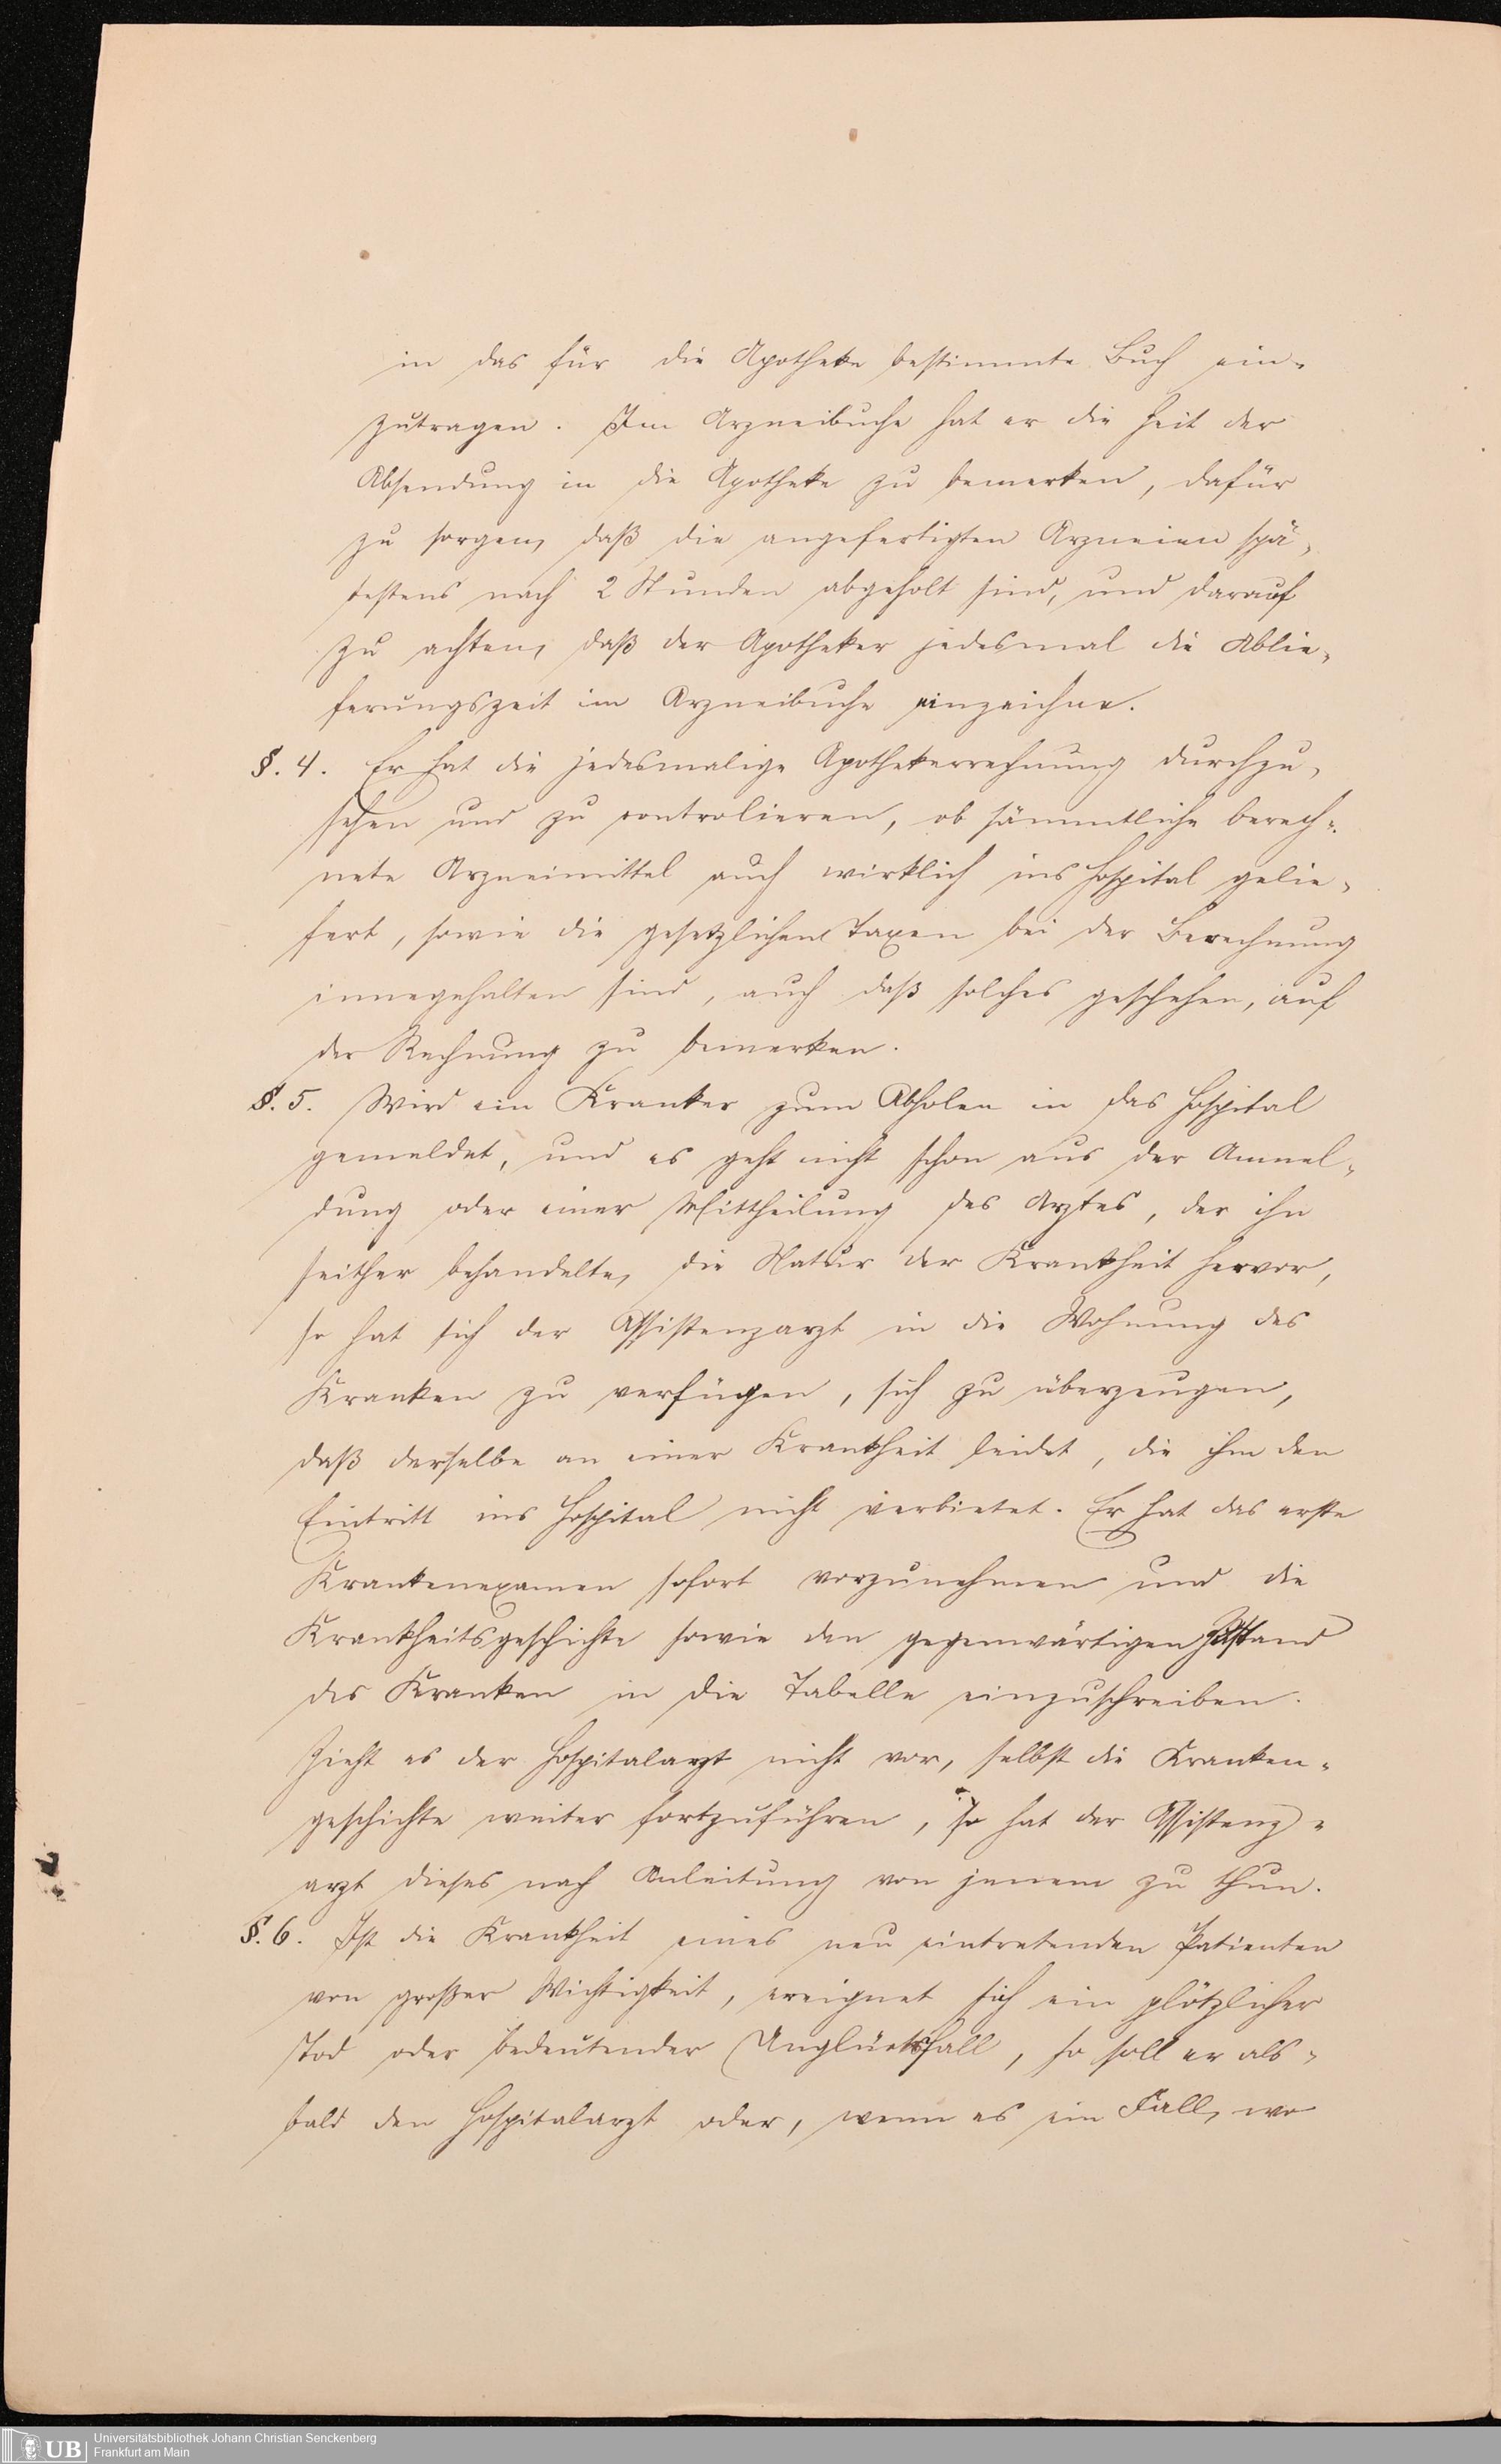 in das für die Apotheke bestimmte Buch ein-
zutragen. Im Arzneibuche hat er die Zeit der
Absendung in die Apotheke zu bemerken, dafür
zu sorgen, daß die angefertigten Arzneien spä-
testens nach 2 Stunden abgeholt sind, und darauf
zu achten, daß der Apotheker jedesmal die Ablie-
ferungszeit im Arzneibuche einzeichne.
§. 4. Er hat die jedesmalige Apothekerrechnung durchzu-
sehen und zu controlieren, ob sämmtliche berech-
nete Arzneimittel auch wirklich ins Hospital gelie-
fert, sowie die gesetzlichen Taxen bei der Berechnung
innegehalten sind, auch daß solches geschehen, auf
der Rechnung zu bemerken.
§. 5. Wird ein Kranker zum Abholen in das Hospital
gemeldet, und es geht nicht schon aus der Anmel-
dung oder einer Mittheilung des Arztes, der ihn
seither behandelte, die Natur der Krankheit hervor,
so hat sich der Assistenzarzt in die Wohnung des
Kranken zu verfügen, sich zu überzeugen,
daß derselbe an einer Krankheit leidet, die ihm den
Eintritt ins Hospital nicht verbietet. Er hat das erste
Krankenexamen sofort vorzunehmen und die
Krankheitsgeschichte sowie den gegenwärtigen Zustand
des Kranken in die Tabelle einzuschreiben.
Zieht es der Hospitalarzt nicht vor, selbst die Kranken-
geschichte weiter fortzuführen, so hat der Assistenz-
arzt dieses nach Anleitung von jenem zu thun.
§. 6. Ist die Krankheit eines neu eintretenden Patienten
von großer Wichtigkeit, ereignet sich ein plötzlicher
Tod oder bedeutender Unglücksfall, so soll er als-
bald den Hospitalarzt oder, wenn es ein Fall, wo
UB
Universitätsbibliothek Johann Christian Senckenberg
Frankfurt am Main